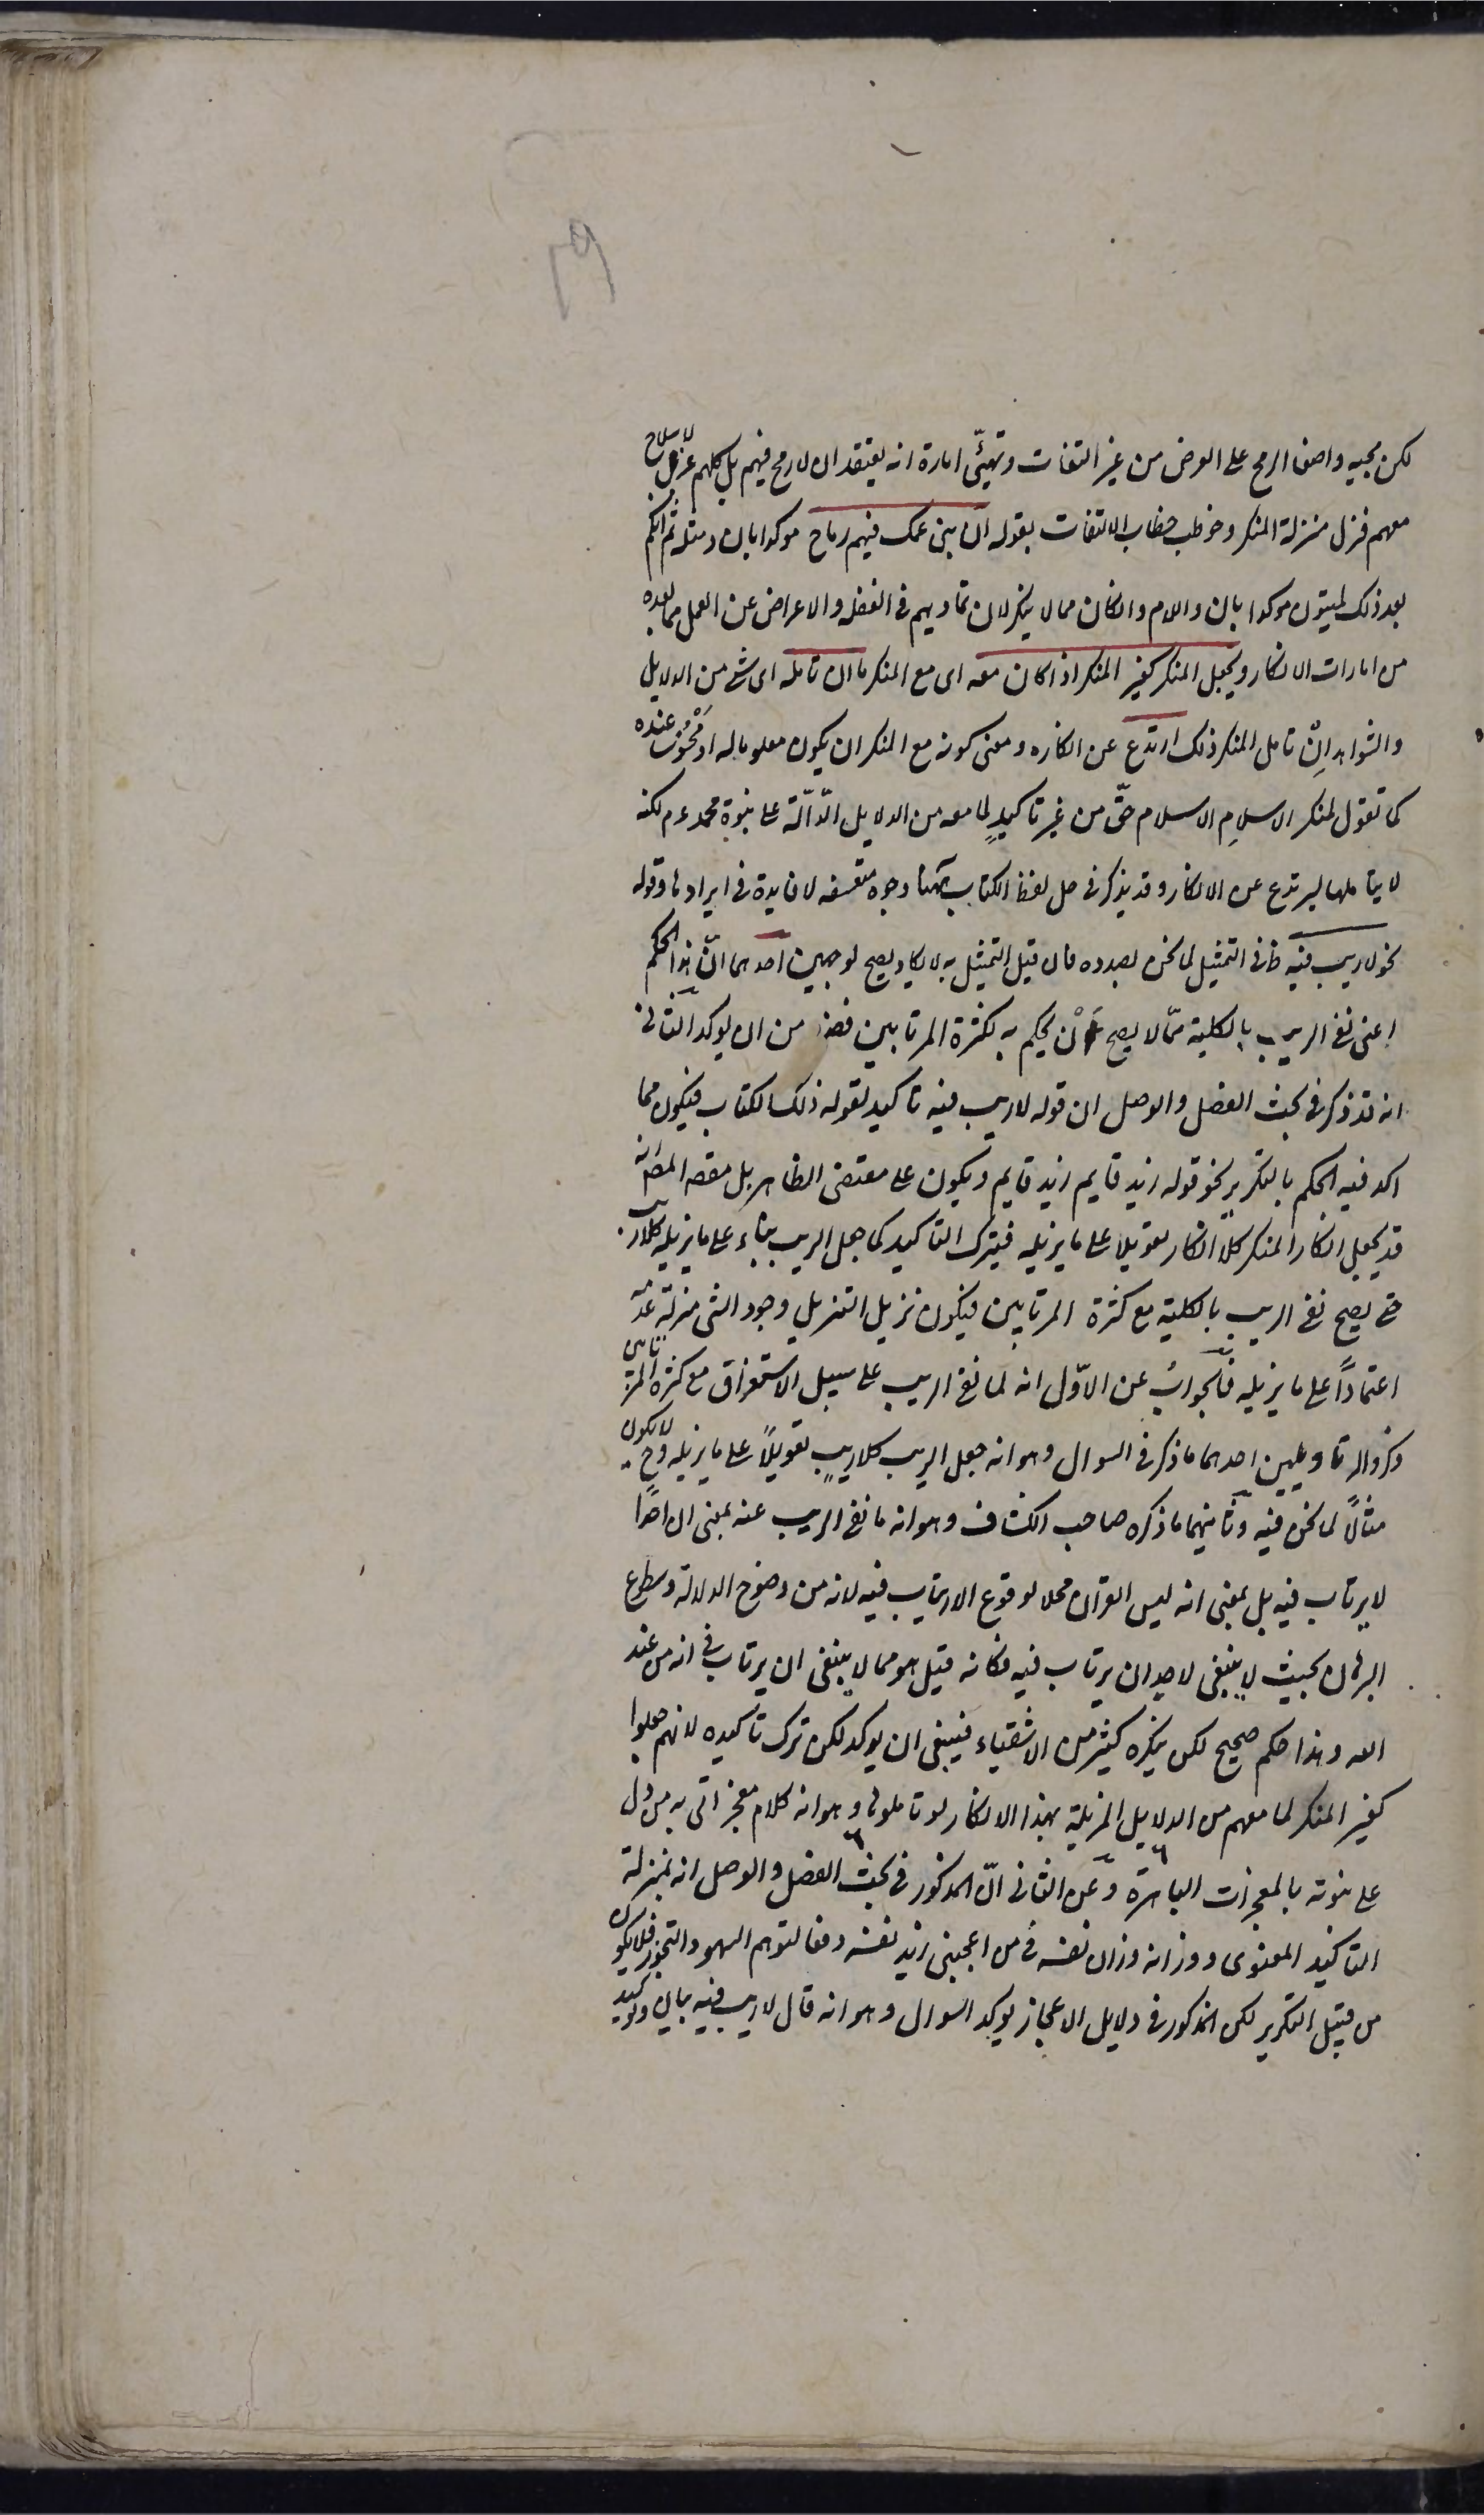 ٢٩
لكن مجيه واضعا الرمح على العرض من غير التفات وتهيّئ امارة انه يعتقد ان لا رمح فيهم بل كلهم عزّل لا سلاح
معهم فنزل منزلة المنكر وخوطب خطاب الالتفات بقوله ان بنى عمك فيهم رماح موكدا بان ومثله ثم انكم
بعد ذلك لميتون موكدا بان واللام وان كان مما لا ينكر لان تماديهم فى الغفلة والاعراض عن العمل لما بعده
من امارات الانكار ويجعل المنكر كغير المنكر اذا كان معه اى مع المنكر ما ان تامله اى شئ من الدلايل
والشواهد اِنْ تامل المنكر ذلك ارتدع عن انكاره ومعنى كونه مع المنكر ان يكون معلوما له او محسوسا عنده
كما تقول لمنكر الاسلامِ الاسلام حقّ من غير تاكيدٍ لما معه من الدلايل الدّالّة على نبوة محمد عم لكنه
لا يتاملها ليرتدع عن الانكار وقد يذكر فى حل لفظ الكتاب ههنا وجوه متعسفه لا فايدة فى ايرادها وقوله
نحو لا ريب فيه ظ فى التمثيل لما نحن بصدده فان قيل التمثيل به لا يكاد يصح لوجهين احدهما انّ هذا الحكم
اعنى نفى الريب بالكلية ممّا لا يصح اَنْ يحكم به لكثرة المرتابين فضلا من ان يوكد الثانى
انه قد ذكر فى بحث الفصل والوصل ان قوله لا ريب فيه تاكيد لقوله ذلك الكتاب فيكون مما
اكد فيه الحكم بالتكرير نحو قوله زيد قايم زيد قايم ويكون على مقتضى الظاهر بل مقصد المصـ انه
قد يجعل انكار المنكر كلا انكار تعويلا على ما يزيله فيترك التاكيد كما جعل الريب بناء على ما يزيله كلا ريب
حتى يصح نفى الريب بالكلية مع كثرة المرتابين فيكون نزيل التنزيل وجود الشى منزلة عدمه
اعتمادًا على ما يزيله فالجوابُ عن الاوّل انه لما نفى الريب على سبيل الاستغراق مع كثرة المرتابين
ذكروا له تاويلين احدهما ما ذكر فى السوال وهو انه جعل الريب كلا ريبٍ تعويلًا على ما يزيله وح لا يكون
مثالًا لما نحن فيه وثانيهما ما ذكره صاحب الكشاف وهو انه ما نفى الريب عنه بمعنى ان احدًا
لا يرتاب فيه بل بمعنى انه ليس القرآن محلا لوقوع الارتياب فيه لانه من وضوح الدلالة وسطوع
البرهان بحيث لا ينبغى لاحد ان يرتاب فيه فكانه قيل هو مما لا ينبغى ان يرتاب فى انه من عند
الله وهذا حكم صحيح لكن ينكره كثير من الاشقياء فينبغى ان يوكد لكن ترك تاكيده لانهم جعلوا
كغير المنكر لما معهم من الدلايل المزيلة بهذا الانكار لو تاملوها وهو انه كلام معجز اتى به من دل
على نبوته بالمعجزات الباهرة وعن الثانى انّ المذكور فى بحث الفصل والوصل انه بمنزلة
التاكيد المعنوى ووزانه وزان نفسه فى من اعجبنى زيد نفسه دفعا لتوهم السهو والتجوز فلا يكون
من قبيل التكرير لكن المذكور فى دلايل الاعجاز يوكد السوال وهو انه قال لا ريب فيه بيان وتوكيد